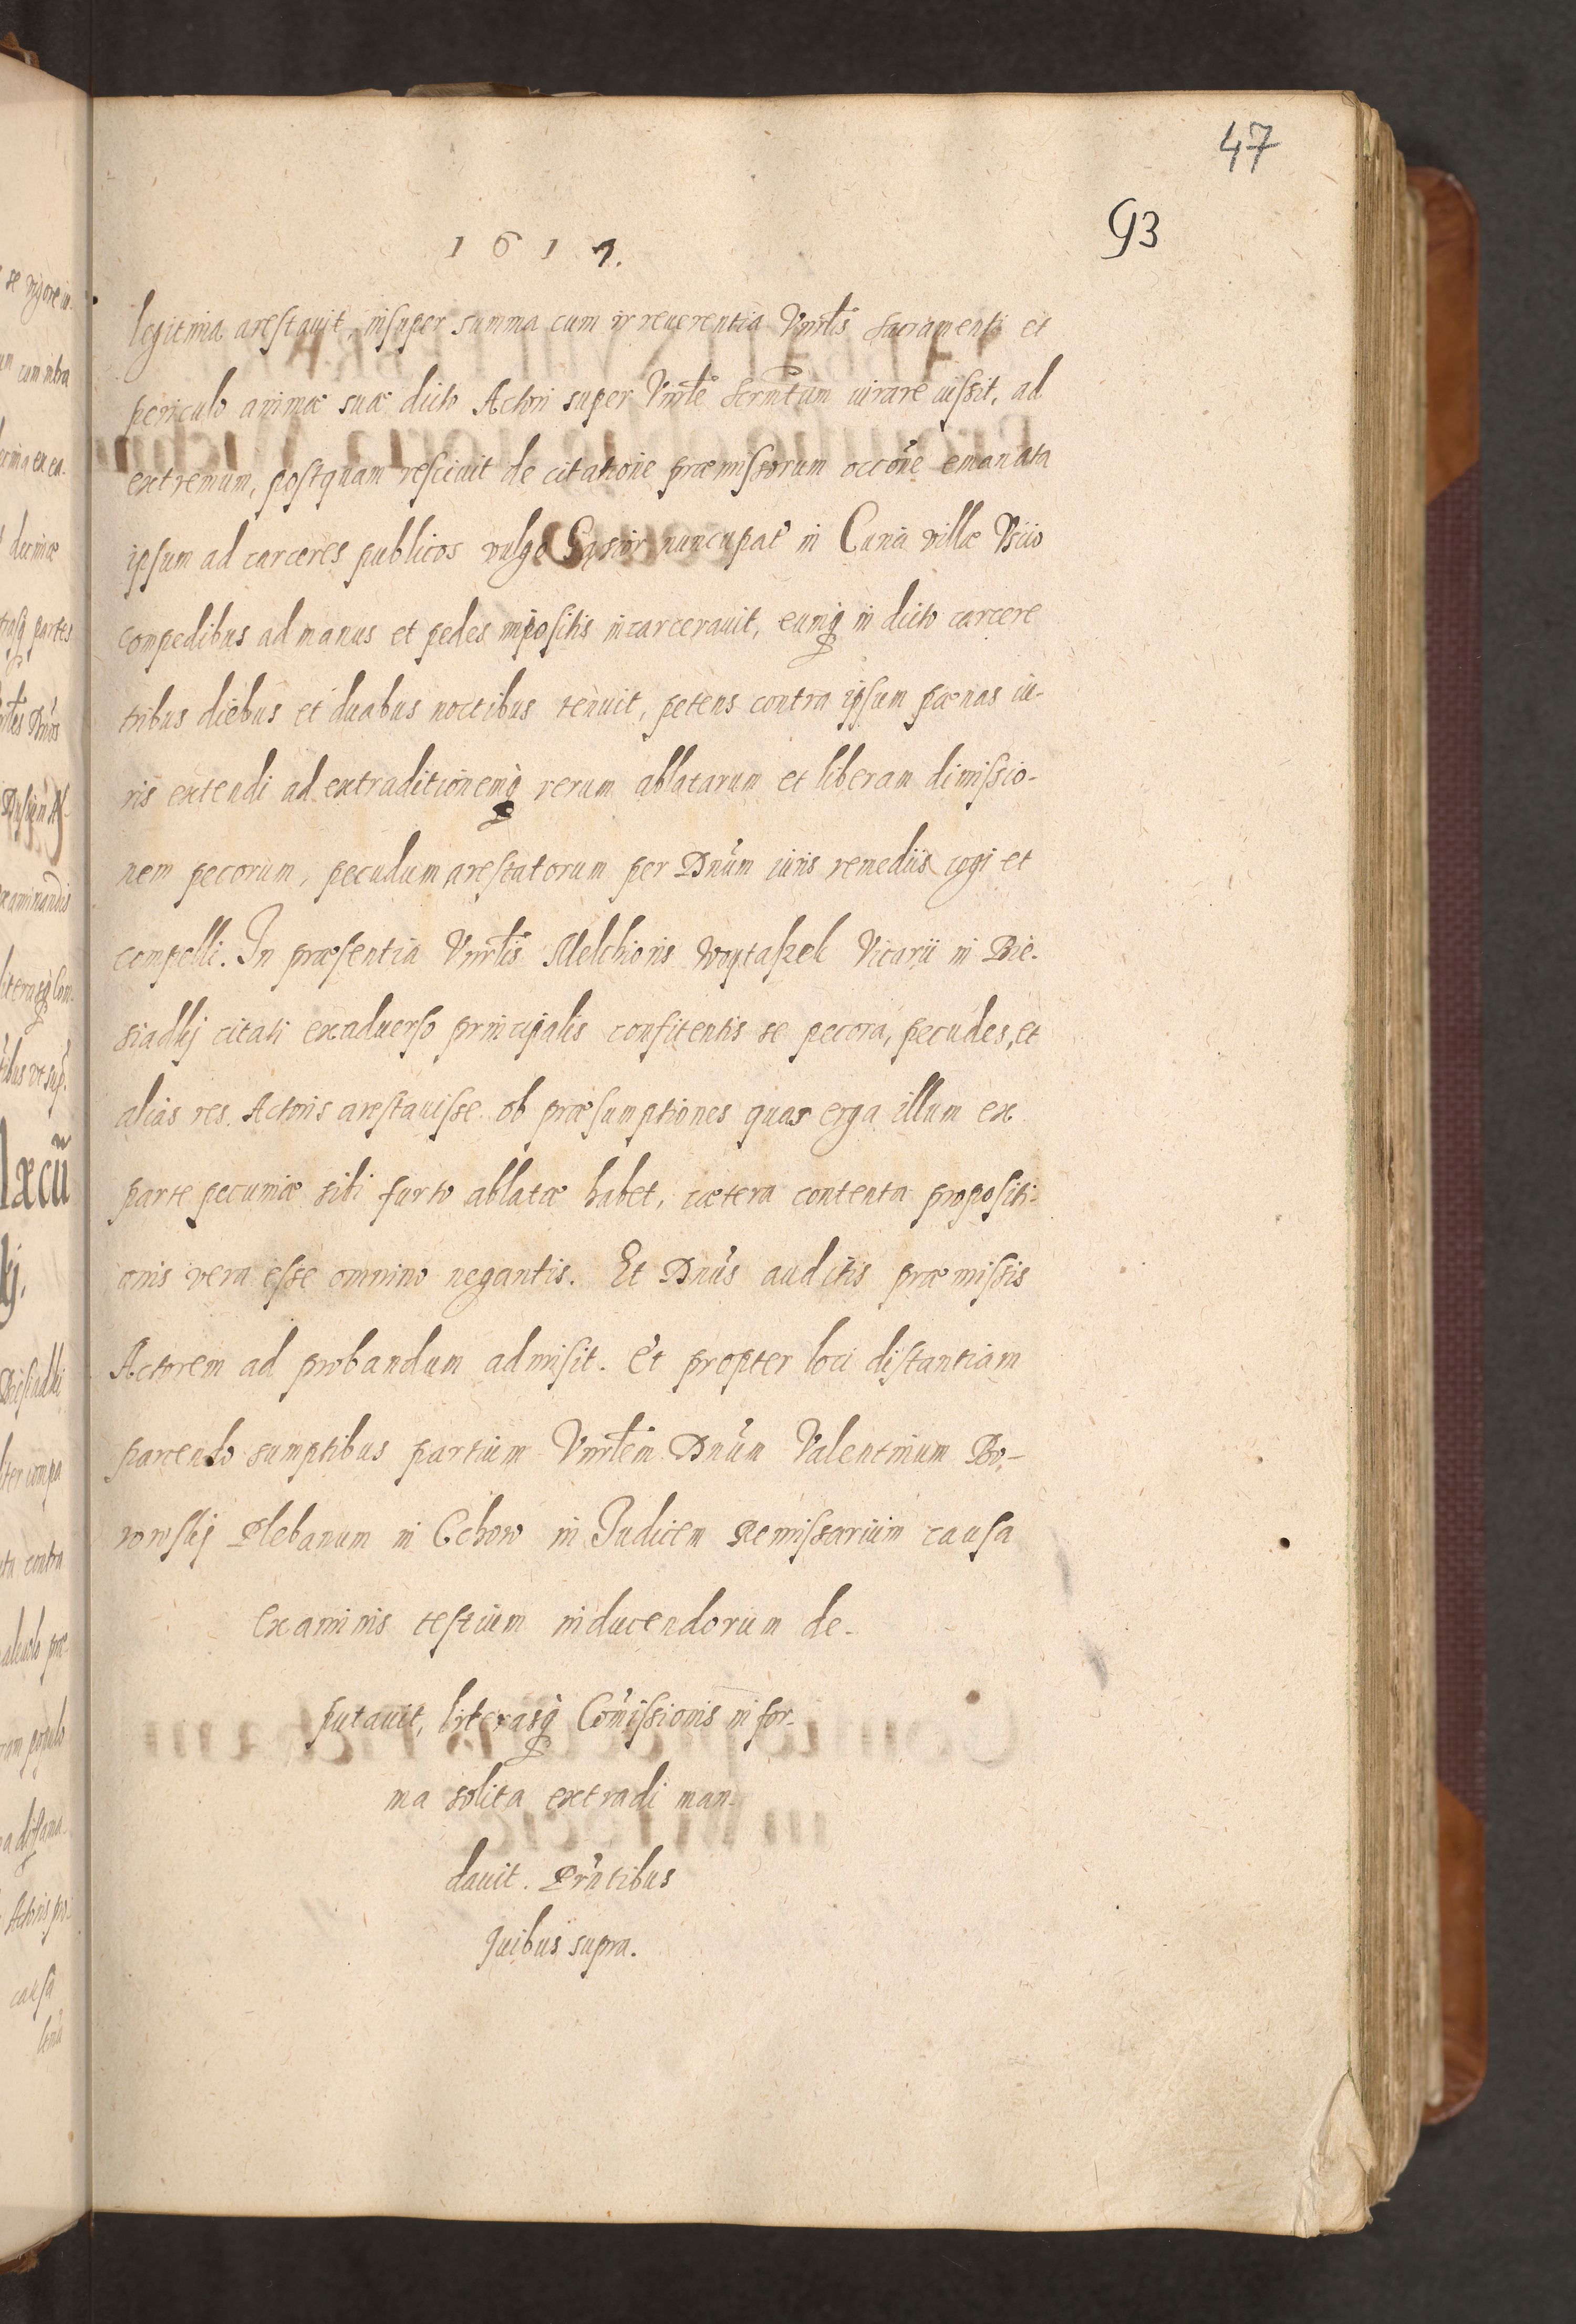 47
93
1617.
legitima arestauit, insuper summa cum irreuerentia Vnrlis̃ Sacramenti et
periculo animæ suæ dicto Actori super Vnrle᷈ Sacrm̃tum iurare iussit, ad
extremum, postquam resciuit de citatione præmissorum occõne emanata
ipsum ad carceres publicos vulgo Gąsior nuncupat̃ in Curia villæ Vsiio
compedibus ad manus et pedes impositis incarcerauit, eumq̃ in dicto carcere
tribus diebus et duabus noctibus tenuit, petens contra ipsum pœnas iu-
ris extendi ad extraditionemq̃ rerum ablatarum et liberam dimissio-
nem pecorum, pecudum arestatorum per Dnũm iuris remediis cogi et
compelli. In præsentia Vnrlis̃ Melchioris Woytaszek Vicarii in Bie-
siadkj citati exaduerso principalis confitentis se pecora, pecudes, et
alias res Actoris arestauisse ob præsumptiones quas erga illum ex
parte pecuniæ sibi furto ablatæ habet, cætera contenta propositi-
onis vera esse omnino negantis. Et Dnũs auditis præmissis
Actorem ad probandum admisit. Et propter loci distantiam
parcendo sumptibus partium Vnrlem̃ Dnũm Valentinum Bo-
rowskj Plebanum in Cchow in Judicem Remissarium causa
examinis testium inducendorum de-
putauit, literasq̃ Com̃issionis in for-
ma solita extradi man-
dauit. Prñtibus
quibus supra.